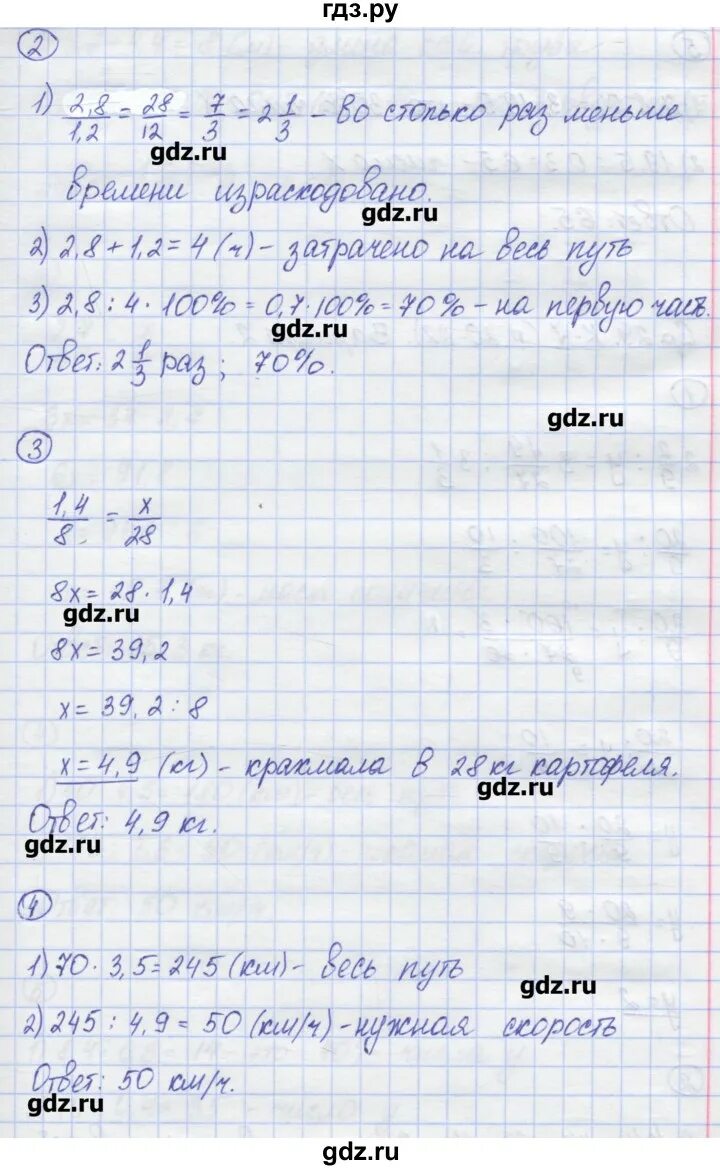 гдз.ру
2
1) 2,8/1,2 = 28/12 = 7/3 = 2 1/3 - во столько раз меньше
gdz.ru
времени израсходовано.
gdz.ru
2) 2,8 + 1,2 = 4 (ч) - затрачено на весь путь
3) 2,8 : 4 · 100% = 0,7 · 100% = 70% - на первую часть.
gdz.ru
Ответ: 2 1/3 раз ; 70%.
gdz.ru
3
1,4/8 = x/28
8x = 28 · 1,4
gdz.ru
8x = 39,2
x = 39,2 : 8
x = 4,9 (кг) - крахмала в 28 кг картофеля.
gdz.ru
Ответ: 4,9 кг.
gdz.ru
4
1) 70 · 3,5 = 245 (км) - весь путь
gdz.ru
2) 245 : 4,9 = 50 (км/ч) - нужная скорость
Ответ: 50 км/ч.
gdz.ru
gdz.ru